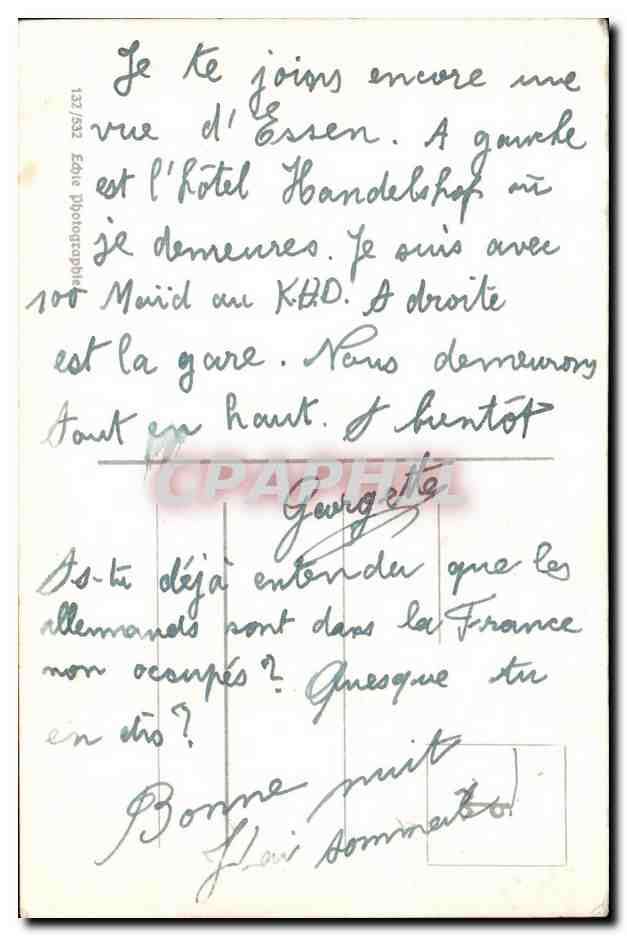 Je te joins encore une
vue d'Essen. A gauche
est l'hôtel Handelshof où
je demeures. Je suis avec
100 Maïd au K.H.D. A droite
est la gare. Nous demeurons
tout en haut. A bientôt
Georgette
As-tu déjà entender que les
allemands sont dans la France
non occupés? Quesque tu
en dis?
Bonne nuit
J'ai sommeil
132/532 Echte Photographie
CPAPHIL